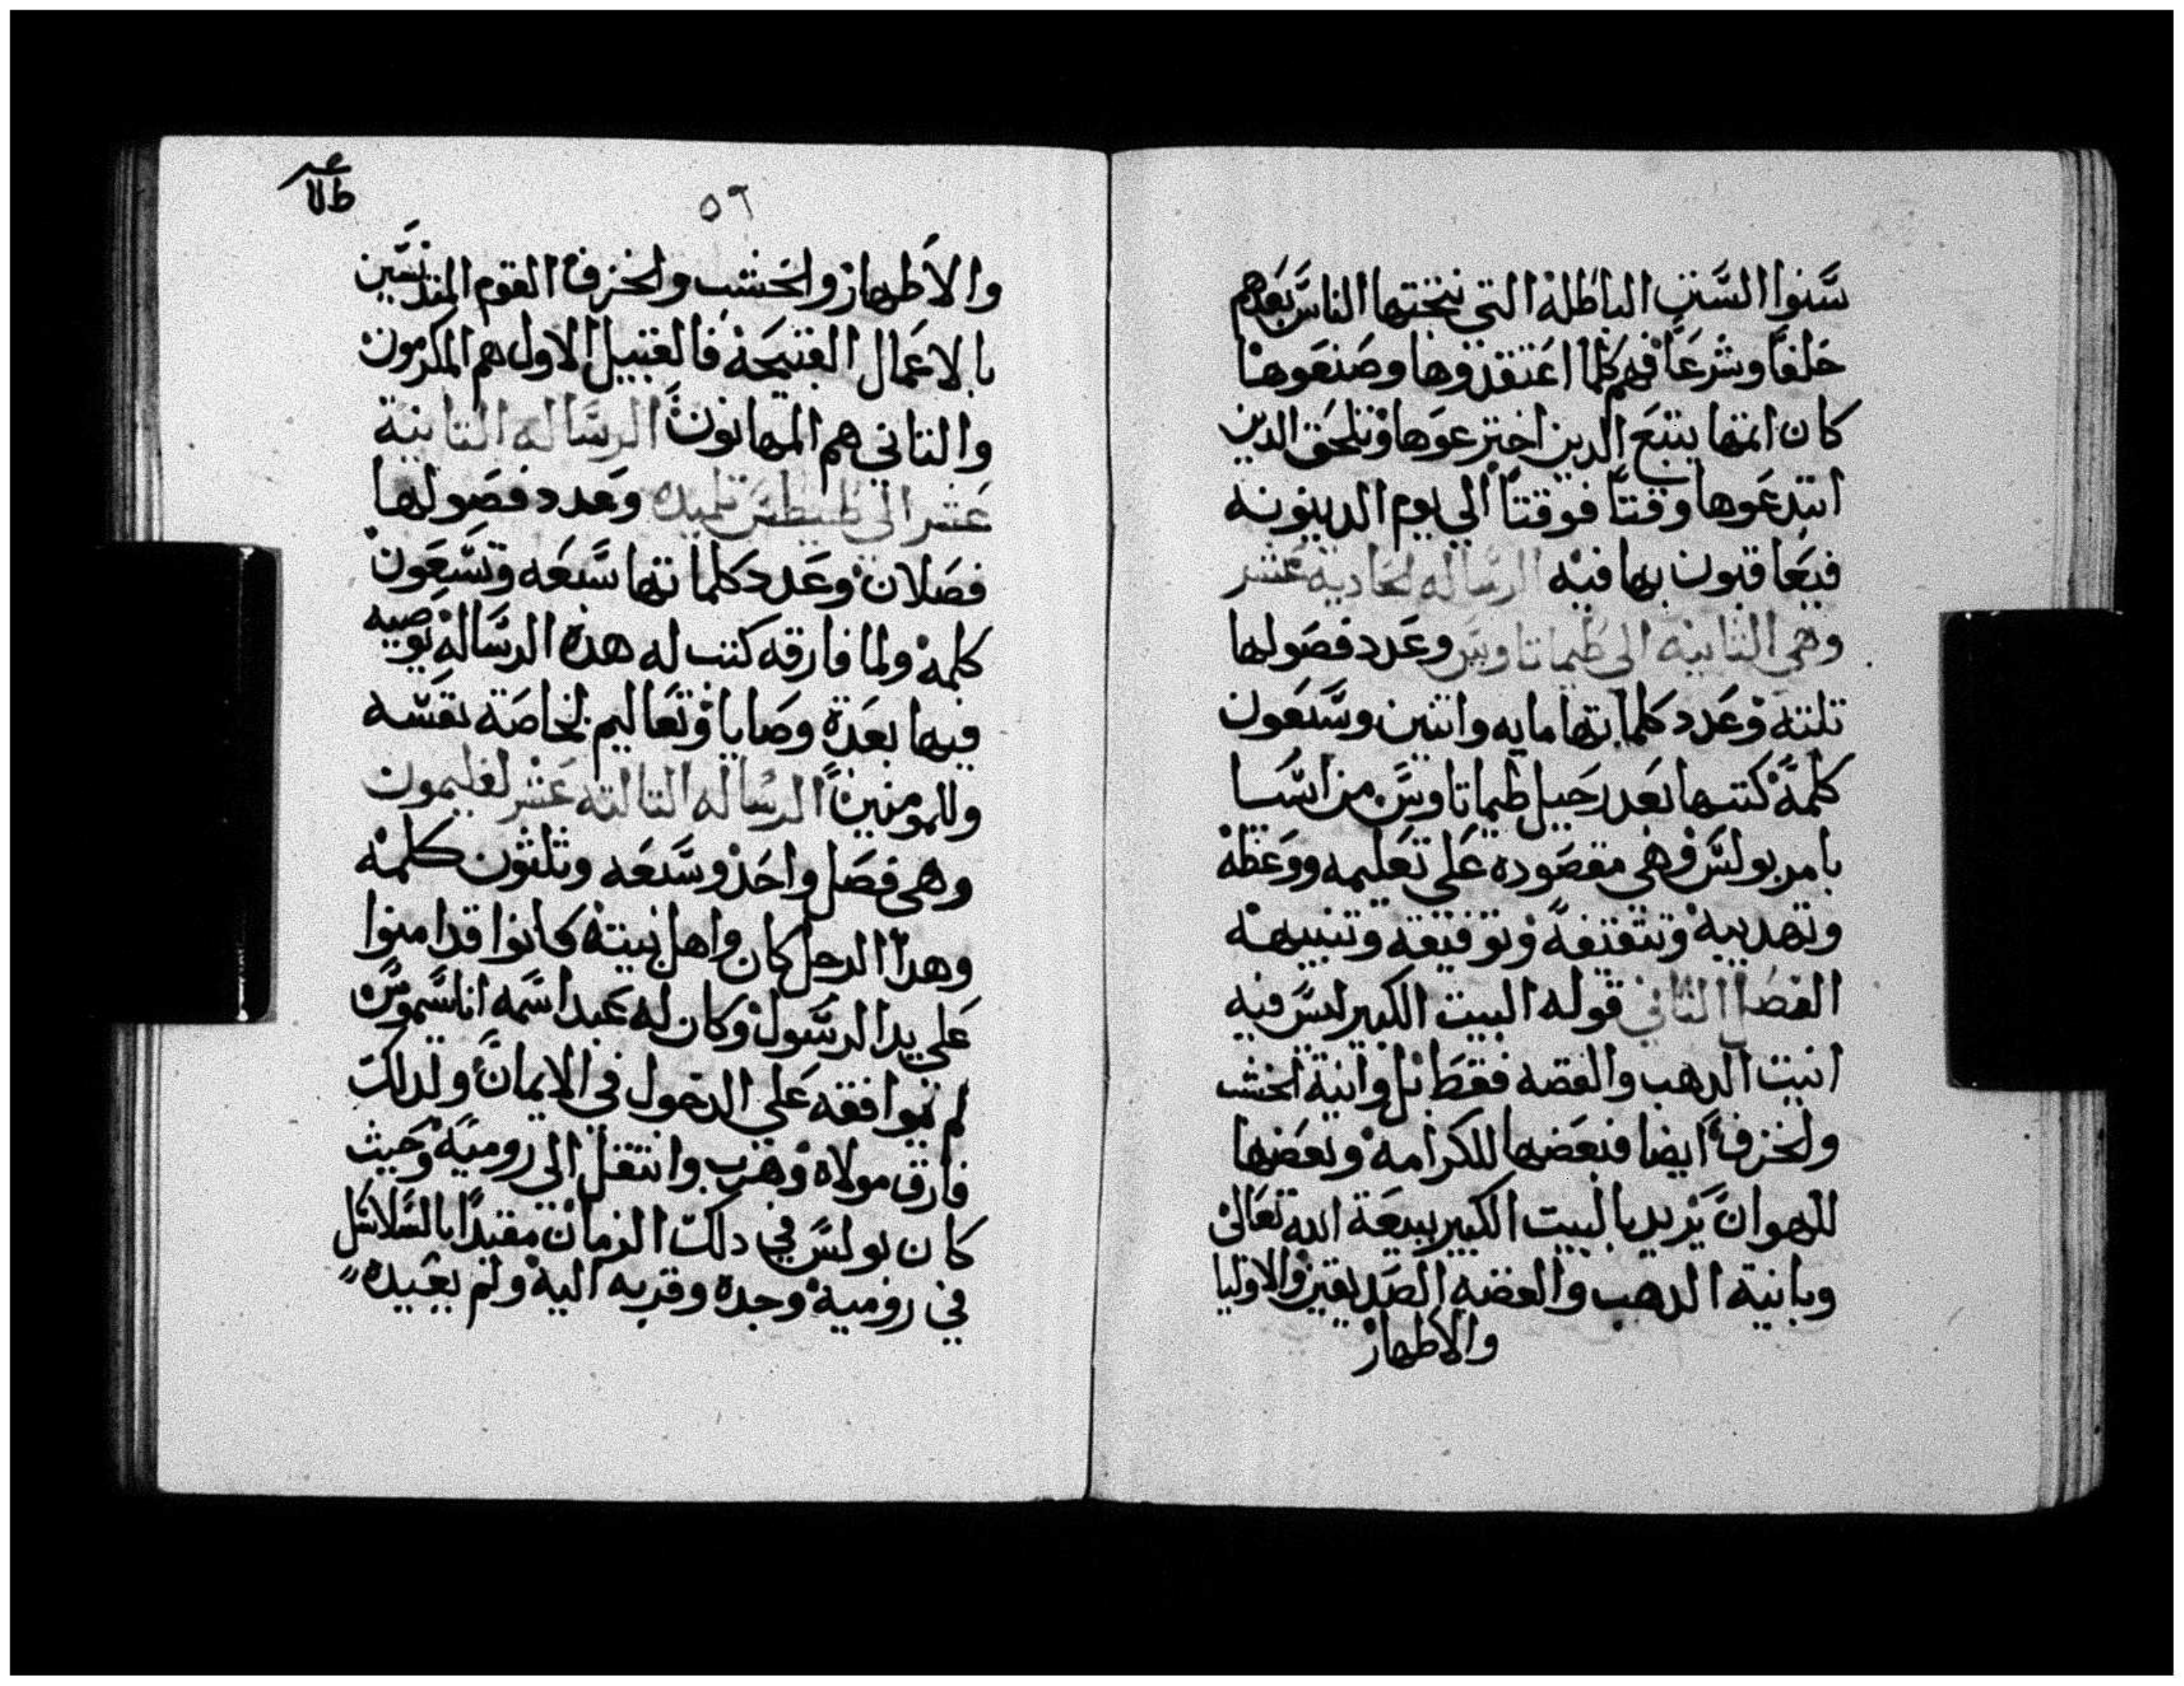 سنوا السنن الباطلة التي ينتحتها الناس بعدهم
خلفا وشرعا فهم كلما اعتقدوها وصنعوها
كان اتمها يتبع الدين اخترعوها وتلحق الدين
ابتدعوها وقتا فوقتا الي يوم الدينونه
فيعاقبون بها فيه الرساله الحادية عشر
وهي الثانيه الى طيماتاوس وعدد فصولها
تلته وعدد كلماتها مايه واتنين وسبعون
كلمة كتبها بعد رحيل طيماتاوس من اسيا
بامر بولس وهي مقصوده علي تعليمه ووعظه
وتهديبه وتتقيفه وتوقيفه وتنبيهه
الفصل الثاني قوله البيت الكبير ليس فيه
انيت الدهب والفضه فقط بل وانية الخشب
والخزف ايضا فبعضها للكرامه وبعضها
للهوان يريد بالبيت الكبير بيعة الله تعالى
وبانية الدهب والفضه الصديقين والاوليا
والاطهار
٥٦
والاطهار والخشب والخزف القوم المتدنسين
بالاعمال القبيحة فالقبيل الاول هم المكرمون
والتاني هم المهانون الرساله التانية
عشر الي طيطس تلميده وعدد فصولها
فصلان وعدد كلماتها سبعه وتسعون
كلمه ولما فارقه كتب له هده الرساله توصيه
فيها بعدة وصايا وتعاليم لخاصة نفسه
وللمومنين الرساله التالته عشر لفليمون
وهي فصل واحد وسبعه وتلتون كلمه
وهدا الرجل كان واهل بيته كانوا قد امنوا
علي يد الرسول وكان له عبد اسمه اناسيموس
لم يوافقه علي الدخول في الايمان ولدلك
فارق مولاه وهرب وانتقل الي رومية وحيث
كان بولس في دلك الزمان مقيدا بالسلاسل
في رومية وجده وقربه اليه ولم يعيده